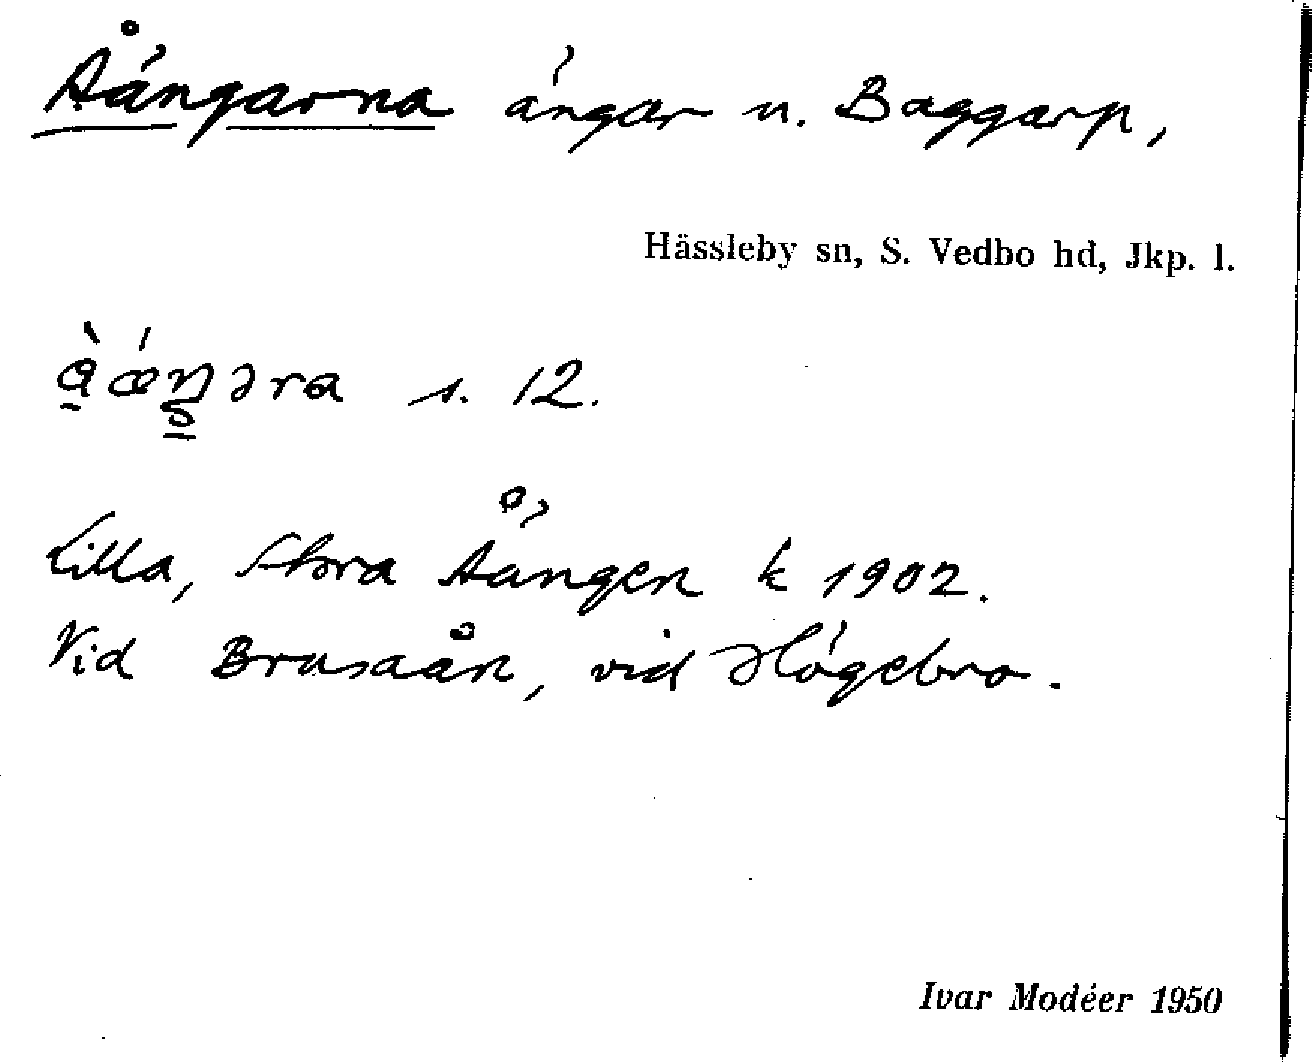 Åängarna ängar n. Baggarp,
Hässleby sn, S. Vedbo hd, Jkp. l.
s. 12.
Lilla, Stora Åängen k 1902.
Vid Brusaån, vid Högebro.
Ivar Modéer 1950